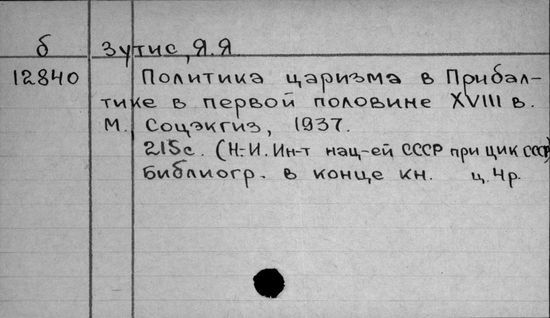 б Зутис, Я.Я
12840 Политика царизма в Прибал-
тике в первой половине XVIII в.
М., Соцэкгиз, 1937.
215с. (Н.-И. Ин-т нац-ей СССР при цик ссср)
Библиогр. в конце кн. ц. 4р.